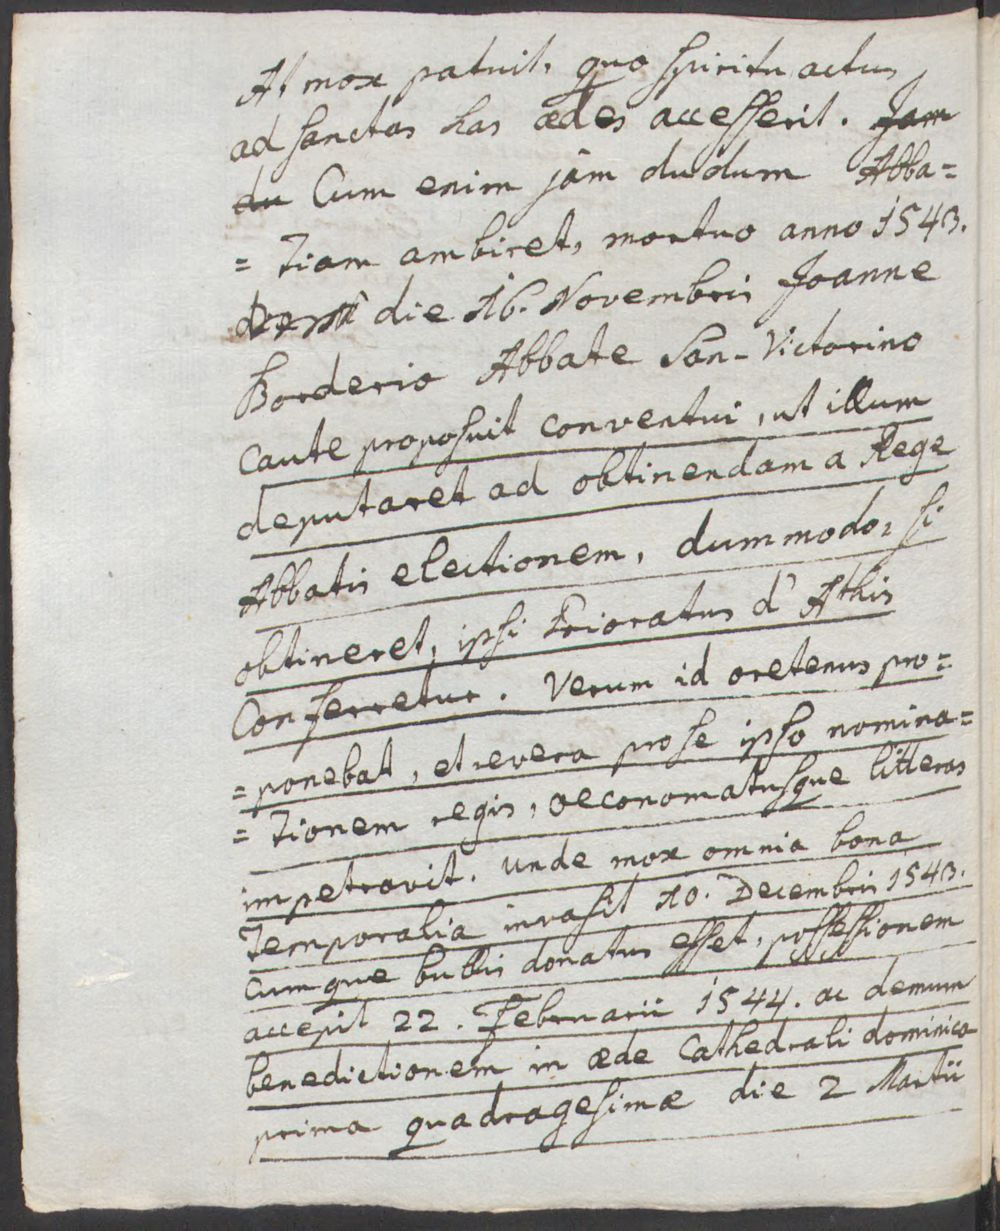 At mox patuit, quo spiritu actus
ad sanctas has ædes accesserit. Jam
du Cum enim jam dudum Abba=
= Tiam ambiret, mortuo anno 1543.
die 16. Novembris Joanne
Borderio Abbate San-Victorino
Caute proposuit conventui, ut illum
deputaret ad obtinendam a Rege
Abbatis electionem, dummodo, si
obtineret, ipsi Prioratus d'Athis
Conferretur. Verum id oretenus pro=
= ponebat, et revera pro se ipso nomina=
= Tionem regis, oeconomatusque litteras
impetravit. unde mox omnia bona
Temporalia invasit 10. Decembris 1543.
cumque bullis donatus esset, possessionem
accepit 22. Februarii 1544. ac demum
benedictionem in æde Cathedrali dominica
prima quadragesimæ die 2 Martii